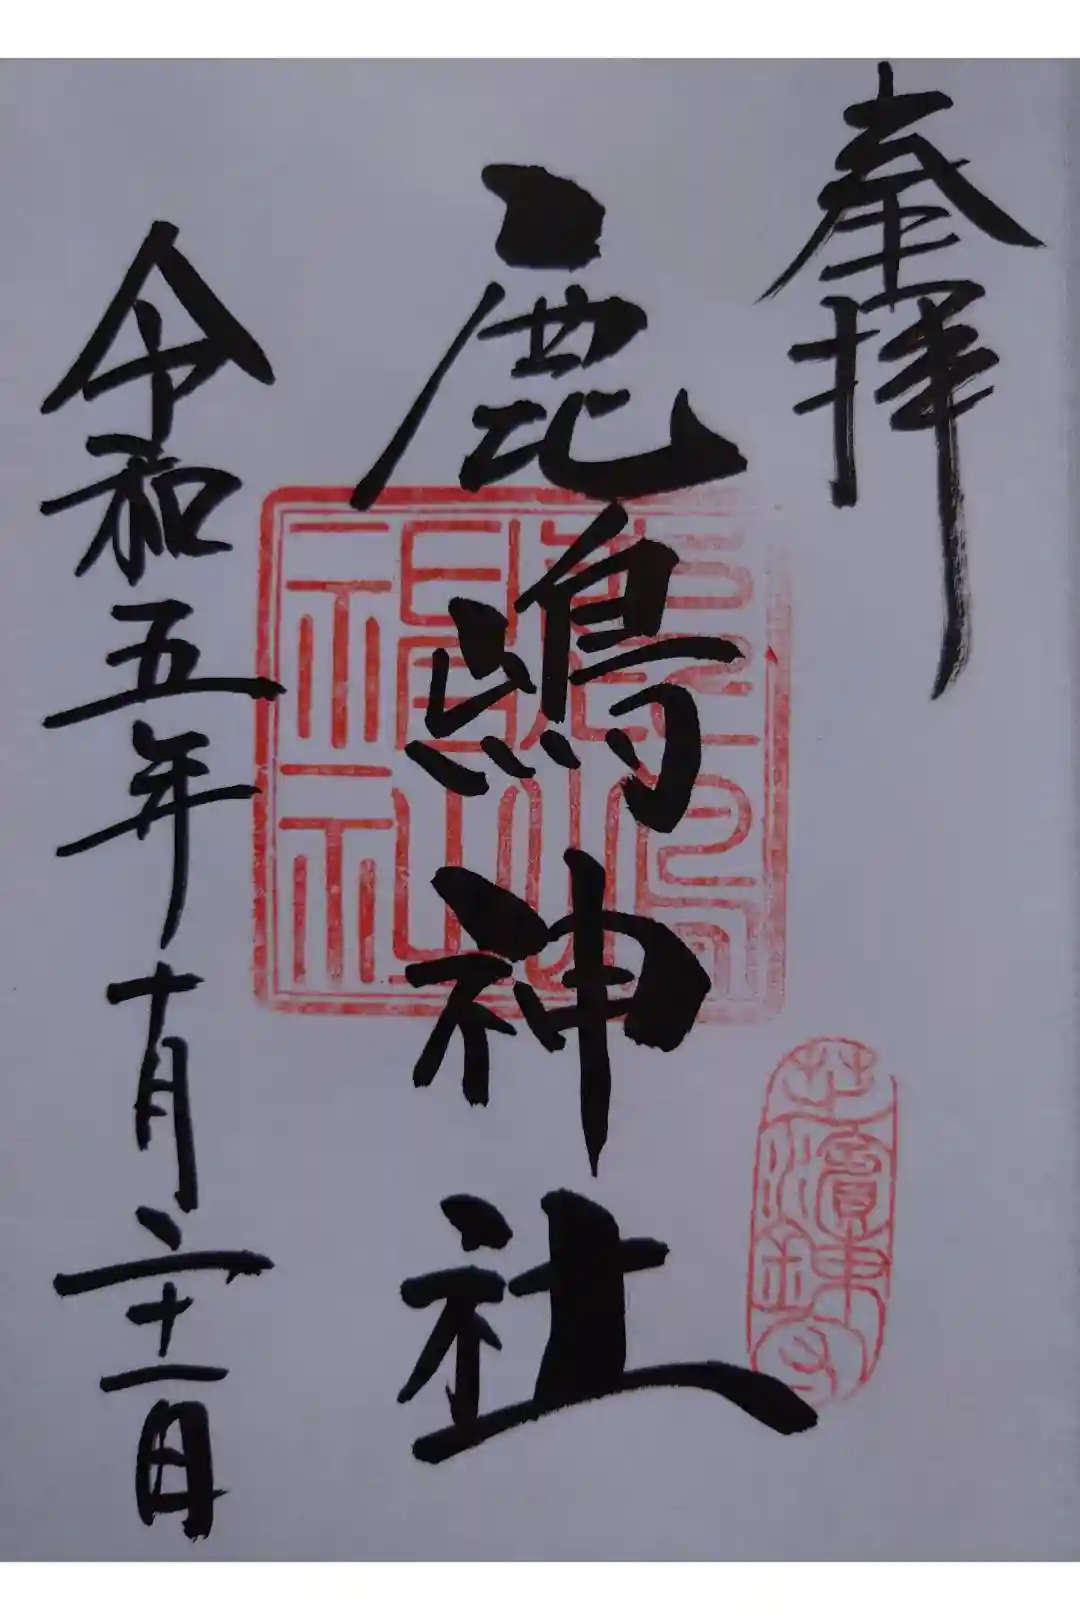 奉拝
鹿嶋神社
令和五年十月二十一日
鹿嶋
神社